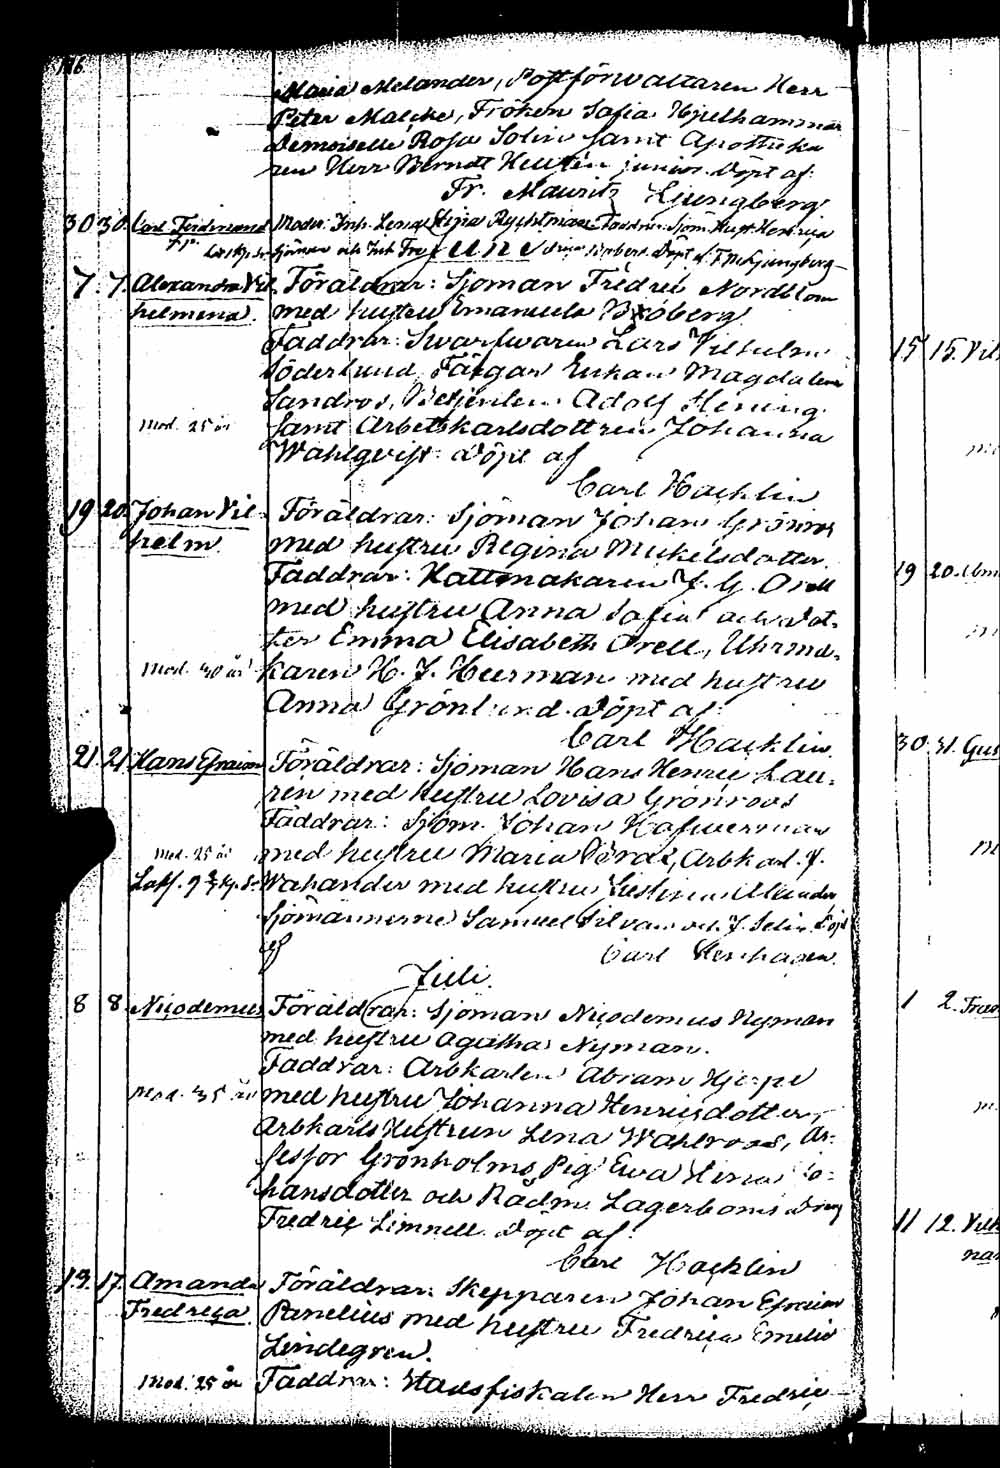 116.
Maria Melander, Postförvaltaren Herr
Peter Malcke, Fröken Sofia Hjelhammar
Demoiselle Rosa Solin samt Apotheka
ren Herr Berndt junior. Döpt af:
Fr. Mauritz Ljungberg
30 30. Carl Ferdinand Moder: Inh. Lena Stina Faddrar: Sjöm.
och Inh. Döpt af F M Ljungberg
Juni
7. 7. Alexandra Vil Föräldrar: Sjöman Fredric Nordblom
helmina. med hustru Emanuela Broberg
Faddrar: Swarfwaren Lars Vilhelm
Söderlund, Färgar Enkan Magdalena
Sandros, Betjenten Adolf Hening
Mod. 25 år samt Arbetskarlsdottren Johanna
Wahlqvist. Döpt af
Carl Hacklin
19 20. Johan Vil Föräldrar: Sjöman Johan Grönroos
helm. med hustru Regina Mickelsdotter.
Faddrar: Hattmakaren J. G. Orell
med hustru Anna Sofia och dot-
ter Emma Elisabeth Orell, Uhrma-
Mod. 40 år karen H. J. Heerman med hustru
Anna Grönlund. Döpt af:
Carl Hacklin.
21. 21. Hans Efraim Föräldrar: Sjöman Hans Henric Lau-
rén med hustru Lovisa Grönroos
Faddrar: Sjöm. Johan
Mod. 25 år med hustru Maria Arbkarl. J.
Wahander med hustru
Sjömännerne Samuel och J. Selin. Döpt
af Carl
Juli.
8 8. Nicodemus Föräldrar: Sjöman Nicodemus Nyman
med hustru Agatha Nyman.
Faddrar: Arbkarlen Abram Hjerpe
Mod. 35 år med hustru Johanna Henricsdotter,
Arbkarls Hustrun Lena Wahlroos, As-
sessor Grönholms Pig. Ewa Stina Jo-
hansdotter och Rådm. Lagerboms Dreng
Fredric Limnell. Döpt af:
Carl Hacklin
13. 17. Amanda Föräldrar: Skepparen Johan Efraim
Fredrica. Panelius med hustru Fredrica Emelie
Lindegren.
Mod. 25 år Faddrar: Stadsfiskalen Herr Fredric
15 15. Vil
19 20.
30. 31. Gus
1 2.
11 12. Vilh